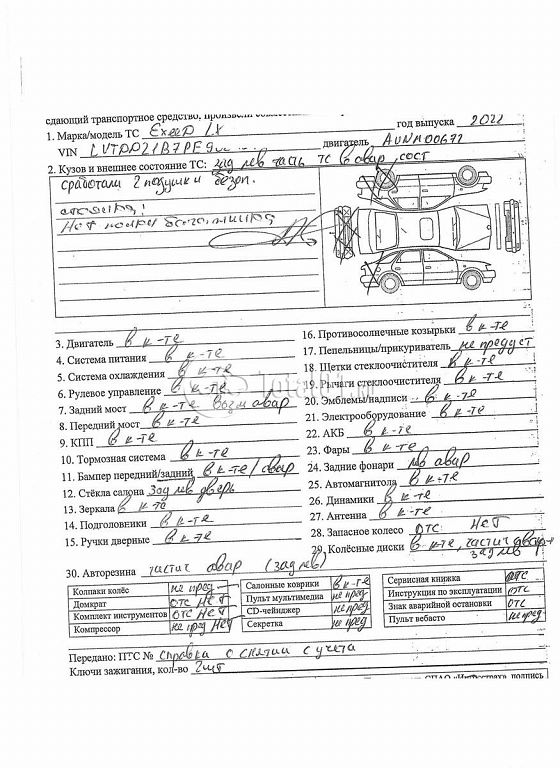 сдающий транспортное средство, произвели
1. Марка/модель ТС Exeed LX год выпуска 2022
VIN LVTDD21B7PF9 двигатель
2. Кузов и внешнее состояние ТС: зад лев часть ТС в авар. сост
сработали 2 подушки безоп.
стоянка!
Нет полки багажника
3. Двигатель в к-те
4. Система питания в к-те
5. Система охлаждения в к-те
6. Рулевое управление в к-те
7. Задний мост в к-те возм авар
8. Передний мост в к-те
9. КПП в к-те
10. Тормозная система в к-те
11. Бампер передний/задний в к-те/авар
12. Стёкла салона зад лев дверь
13. Зеркала в к-те
14. Подголовники в к-те
15. Ручки дверные в к-те
16. Противосолнечные козырьки в к-те
17. Пепельницы/прикуриватель не предуст
18. Щетки стеклоочистителя в к-те
19. Рычаги стеклоочистителя в к-те
20. Эмблемы/надписи в к-те
21. Электрооборудование в к-те
22. АКБ в к-те
23. Фары в к-те
24. Задние фонари лев авар
25. Автомагнитола в к-те
26. Динамики в к-те
27. Антенна в к-те
28. Запасное колесо отс нет
29. Колёсные диски в к-те, частич авар
зад лев
30. Авторезина частич авар (зад лев)
Колпаки колёс не пред
Домкрат отс нет
Комплект инструментов отс нет
Компрессор не пред нет
Салонные коврики в к-те
Пульт мультимедиа не пред
CD-чейнджер не пред
Секретка не пред
Сервисная книжка отс
Инструкция по эксплуатации отс
Знак аварийной остановки отс
Пульт вебасто не пред
Передано: ПТС № справка о снятии с учета
Ключи зажигания, кол-во 2шт
СПАО «Ингосстрах», подпись